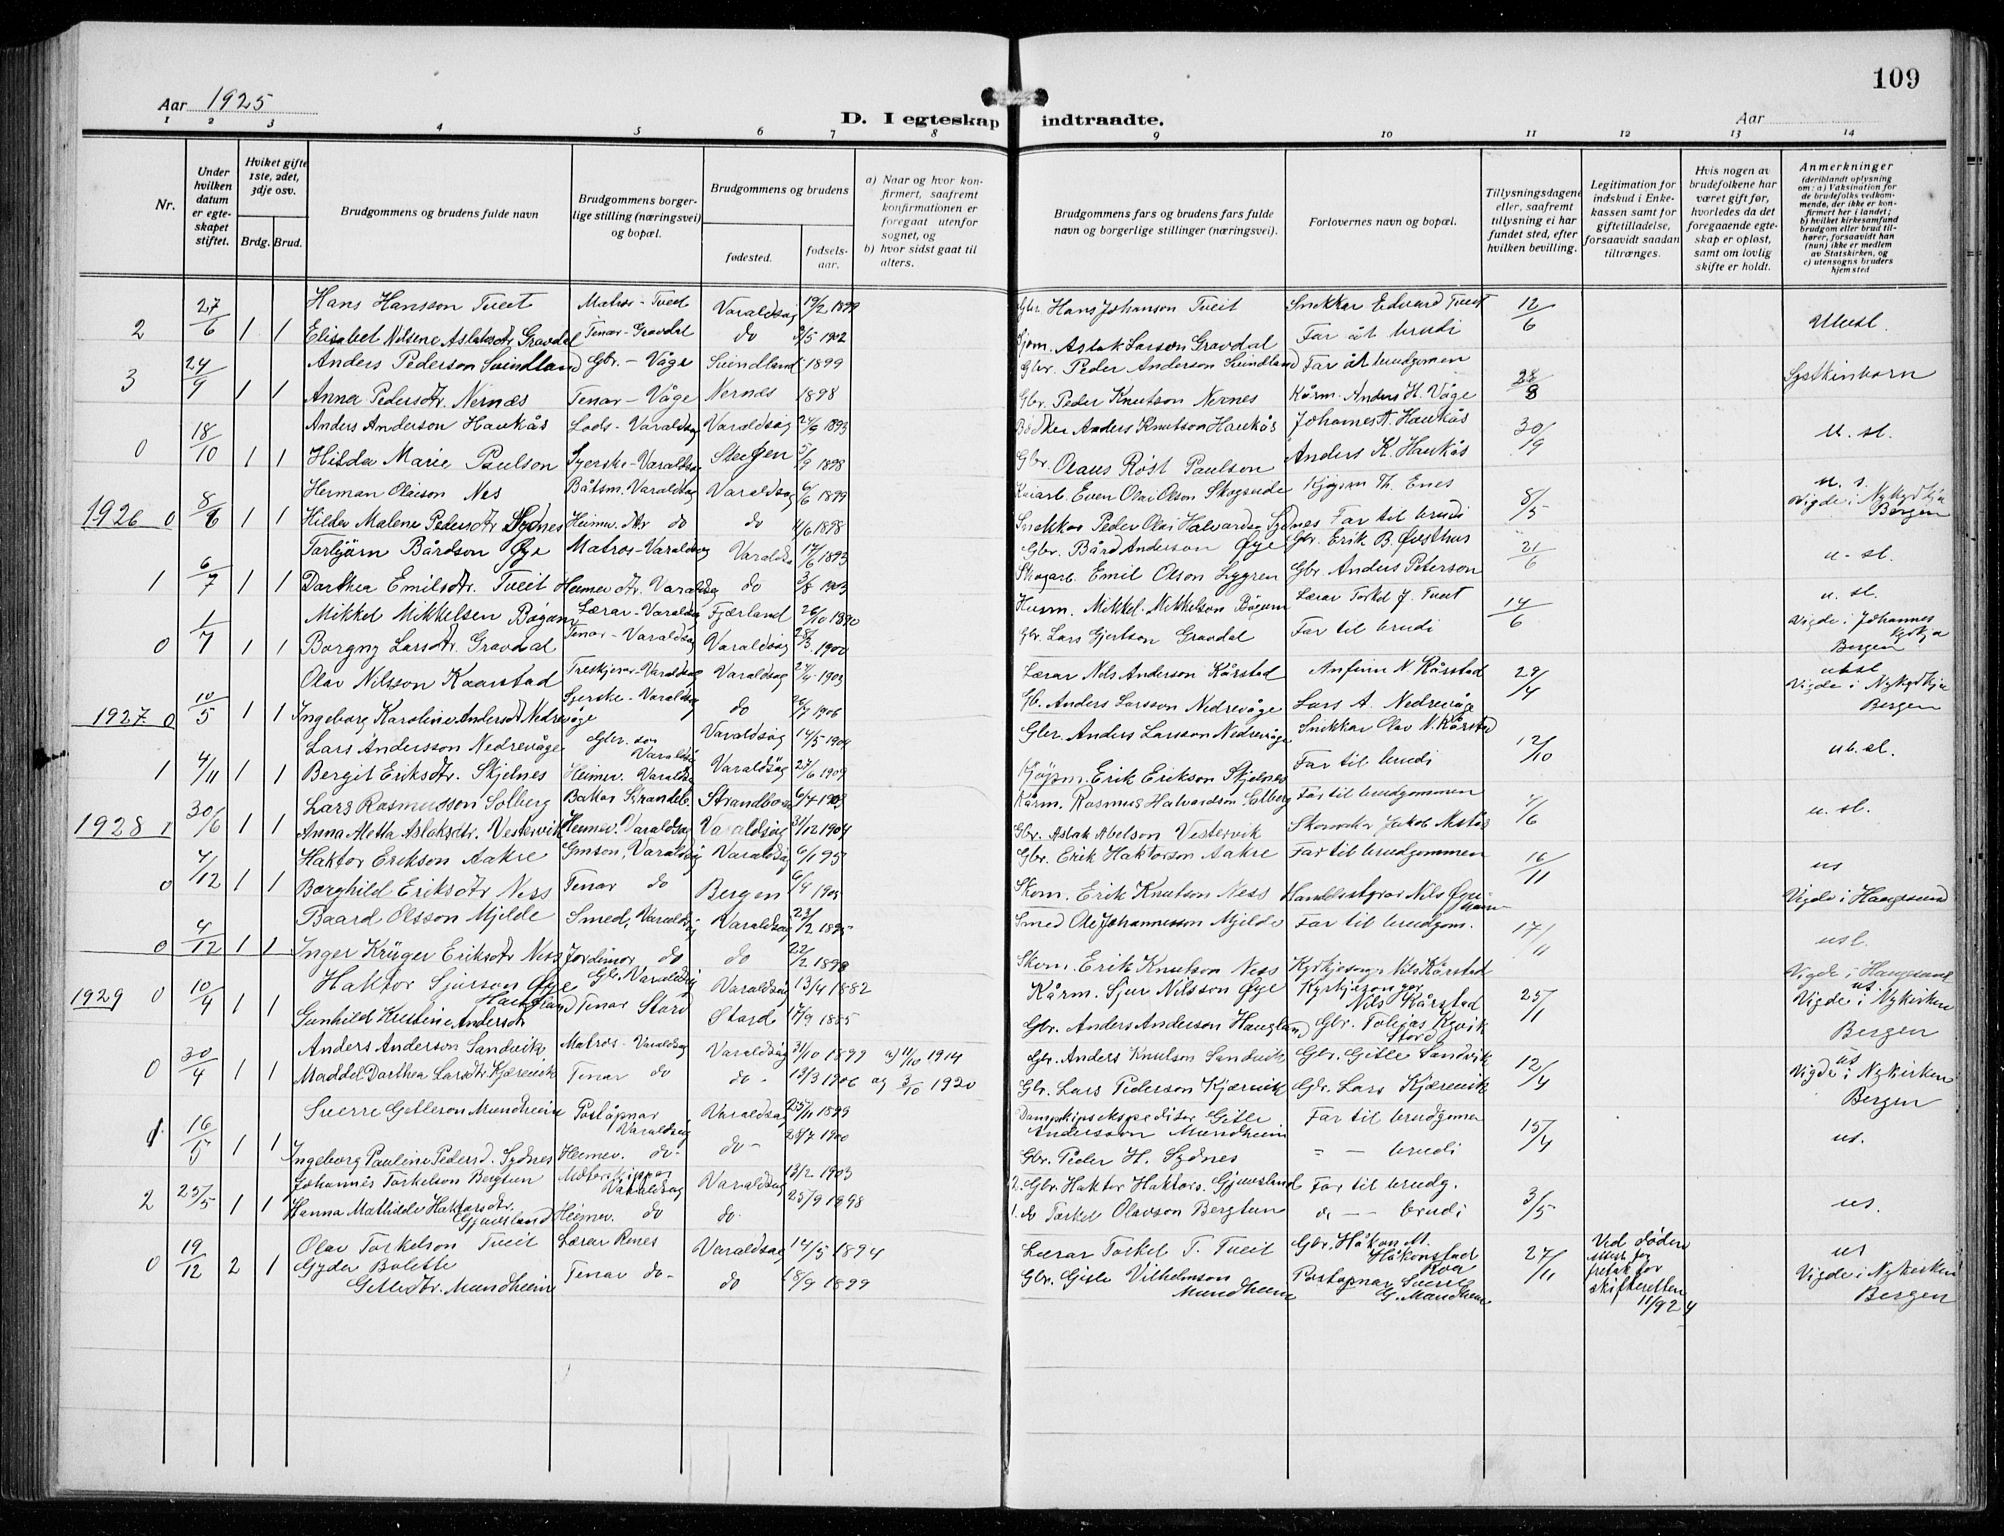 109
Aar 1925
D. I egteskap indtraadte.
Aar
1 2 3 4 5 6 7 8 9 10 11 12 13 14
Nr.
Under hvilken datum er egteskapet stiftet.
Hviket gifte 1ste, 2det, 3dje osv.
Brdg. Brud.
Brudgommens og brudens fulde navn
Brudgommens borgerlige stilling (næringsvei) og bopæl.
Brudgommens og brudens
fødested.
fødselsaar.
a) Naar og hvor konfirmert, saafremt konfirmationen er foregaat utenfor sognet, og
b) hvor sidst gaat til alters.
Brudgommens fars og brudens fars fulde navn og borgerlige stillinger (næringsvei).
Forlovernes navn og bopæl.
Tillysningsdagene eller, saafremt tillysning ei har fundet sted, efter hvilken bevilling.
Legitimation for indskud i Enkekassen samt for giftetilladelse, forsaavidt saadan tiltrænges.
Hvis nogen av brudefolkene har været gift før, hvorledes da det foregaaende egteskap er opløst, samt om lovlig skifte er holdt.
Anmerkninger
(deriblandt oplysning om: a) Vaksination for de brudefolks vedkommende, der ikke er konfirmert her i landet; b) hvilket kirkesamfund brudgom eller brud tilhører, forsaavidt han (hun) ikke er medlem av Statskirken, og c) utensogns bruders hjemsted
2 27/6 1 1 Hans Hansson Tveit Matros - Tveit Varaldsøg 19/2 1899 Gbr. Hans Johanson Tveit Snekkar Edvard Tveit 12/6
Elisabet Nilsene Aslaksdtr Gravdal Tenar - Gravdal do 3/5 1902 Aslak Larsson Gravdal Far åt brudi
3 24/9 1 1 Anders Pederson Svindland Gbr. - Våge Svindland 1899 Gbr. Peder Anderson Svindland Far åt brudgomen 28/8 Systkinborn
Anna Pedersdtr. Nernæs Tenar - Våge Nernes 1898 Gbr. Peder Knutson Nernes Kårm. Anders H. Våge
0 18/10 1 1 Anders Anderson Haukås Lods - Varaldsøg Varaldsøg 24/6 1893 Bødker Anders Knutson Haukås Johannes A. Haukås 30/9 u. sl.
Hilda Marie Paulson Syerske - Varaldsøg Steigen 5/9 1898 Gbr. Olaus Røst Paulson Anders K. Haukås
1926 0 8/6 1 1 Herman Olaison Nes Båtsm. Varaldsøg Varaldsøg 6/6 1899 Kaiarb. Even Olai Olson Skogseide Kjøpm Th. Enes 8/5 u. s.
Hilda Malene Pedersdtr Sydnes Heimev. dtr do do 11/6 1898 Snekkar Peder Olai Halvardsg Sydnes Far til brudi Vigde i Nykyrkja Bergen
1 6/7 1 1 Torbjørn Bårdson Øye Matros - Varaldsøg Varalds. 17/6 1893 Gbr. Bård Anderson Øye Gbr. Erik B. Øvsthus 21/6 u. sl.
Darthea Emilsdtr. Tveit Heimev dtr. Varaldsøg do 3/8 1903 Skogarb. Emil Olson Lyggren Gbr. Anders Peterson
0 1/7 1 1 Mikkel Mikkelsen Bøgum Lærar - Varaldsøg Fjærland 26/10 1890 Husm. Mikkel Mikkelson Bøgum Lærar Torkel J. Tveit 14/6 u. sl.
Borgny Larsdtr. Gravdal Tenar - Varaldsøg Varaldsøg 28/3 1900 Gbr. Lars Gjertson Gravdal Far til brudi Vigde i Johannes kyrkja Bergen
1927 0 10/5 1 1 Olav Nilsson Kaarstad Treskjerar - Varaldsøg Varaldsøg 24/4 1903 Lærar Nils Anderson Kårstad Anfinn N. Kårstad 29/4 ubsl
Ingeborg Karoline Andersdtr Nedrevåge Syerske - Varaldsøg do 26/7 1906 Gb. Anders Larsson Nedrevåge Lars A. Nedrevåge Vigde i Nykyrkja Bergen
1 4/11 1 1 Lars Andersson Nedrevåge Gbr. son Varaldsøg Varaldsøg 14/5 1904 Gbr. Anders Larsson Nedrevåge Snikkar Olav N. Kårstad 12/10 ub. sl.
Bergit Eriksdtr. Skjelnes Heimev. Varaldsøg Varaldsøg 27/6 1909 Kjøpm. Erik Erikson Skjelnes Far til brudi
1928 1 30/6 1 1 Lars Rasmusson Solberg Bakar Strandeb. Strandbarm 6/4 1903 Kårm. Rasmus Halvardson Solberg Far til brudgommen 7/6 u. sl.
Anna Aletta Aslaksdtr. Vestervik Heimev. Varaldsøg Varaldsøg 31/12 1904 Gbr. Aslak Abelson Vestervik Jakob
0 7/12 1 1 Haktor Erikson Aakre Gmson, Varaldsøg Varaldsøg 6/1 95 Gbr. Erik Haktorson Aakre Far til brudgommen 16/11 us
Borghild Eriksdtr Ness Tenar do Bergen 6/4 190 Skom. Erik Knutson Ness Nils Øye Vigde i Haugesund
0 4/12 1 1 Baard Olsson Mjelde Smed, Varaldsøg Varaldsøg 23/2 1895 Smed Ole Johannesson Mjelde Far til brudgom. 17/11 usl.
Inger Krüger Eriksdtr Ness Jordmor do do 22/2 1898 Skom. Erik Knutson Ness Kyrkjesongar Nils Kårstad Vigde i Haugesund
1929 0 10/4 1 1 Haktor Sjurson Øye Gbr. Varaldsøg Varaldsøg 13/4 1882 Kårm. Sjur Nilsson Øye Kyrkjesongar Nils Kårstad 25/1 us.
Gunhild Kristine Andersdtr Haugland Tenar Stord Stord 17/9 1885 Gbr. Anders Anderson Haugland Gbr. Tobias Kgvik Stord Vigde i Nykirken Bergen
0 30/4 1 1 Anders Anderson Sandvik Matros - Varaldsøg Varaldsøg 31/10 1899 a) 11/10 1914 Gbr. Anders Knutson Sandvik Gbr. Gitle Sandvik 12/4 us
Maddel Darthea Larsdtr. Kjærevik Tenar do do - 13/3 1906 ag 3/10 1920 Gbr. Lars Pederson Kjærevik Gbr. Lars Kjærevik Vigde i Nykirken Bergen
1 16/5 1 1 Sverre Gitleson Mundheim Poståpnar Varaldsøg Varaldsøg 25/11 1899 Dampskipsekspeditør Gitle Andersson Mundheim Far til brudgomen 15/4 us.
Ingeborg Pauline Pedersd. Sydnes Heimev. do - do - 28/7 1900 Gbr. Peder H. Sydnes " - brudi
2 25/5 1 1 Johannes Torkelson Bergtun Motorskipper Varaldsøg Varaldsøg 13/2 1903 2. Gbr Haktor Haktors. Gjuvsland Far til brudg. 3/5 us.
Hanna Mathilde Haktorsdtr. Gjuvsland Heimev. do do. 25/9 1898 1. do Torkel Olavson Bergtun do - brudi
0 19/12 2 1 Olav Torkelson Tveit Lærar Renes Varaldsøg 14/5 1894 Lærar Torkel T. Tveit Gbr. Håkon M. Håkonstad 27/11 Ved døden attest fra skifteretten 11/92 4 us
Gyda Bolette Gitledtr. Mundheim Tenar do - do 18/9 1899 Gbr. Gitle Vilhelmson Mundheim Poståpnar Sverre G. Mundheim Vigde i Nykirken Bergen